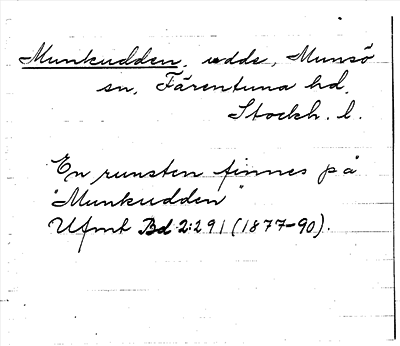 Munkudden, udde, Munsö
sn, Färentuna hd,
Stockh. l.
En runsten finnes på
"Munkudden"
Ufmt Bd 2:291 (1877-90).